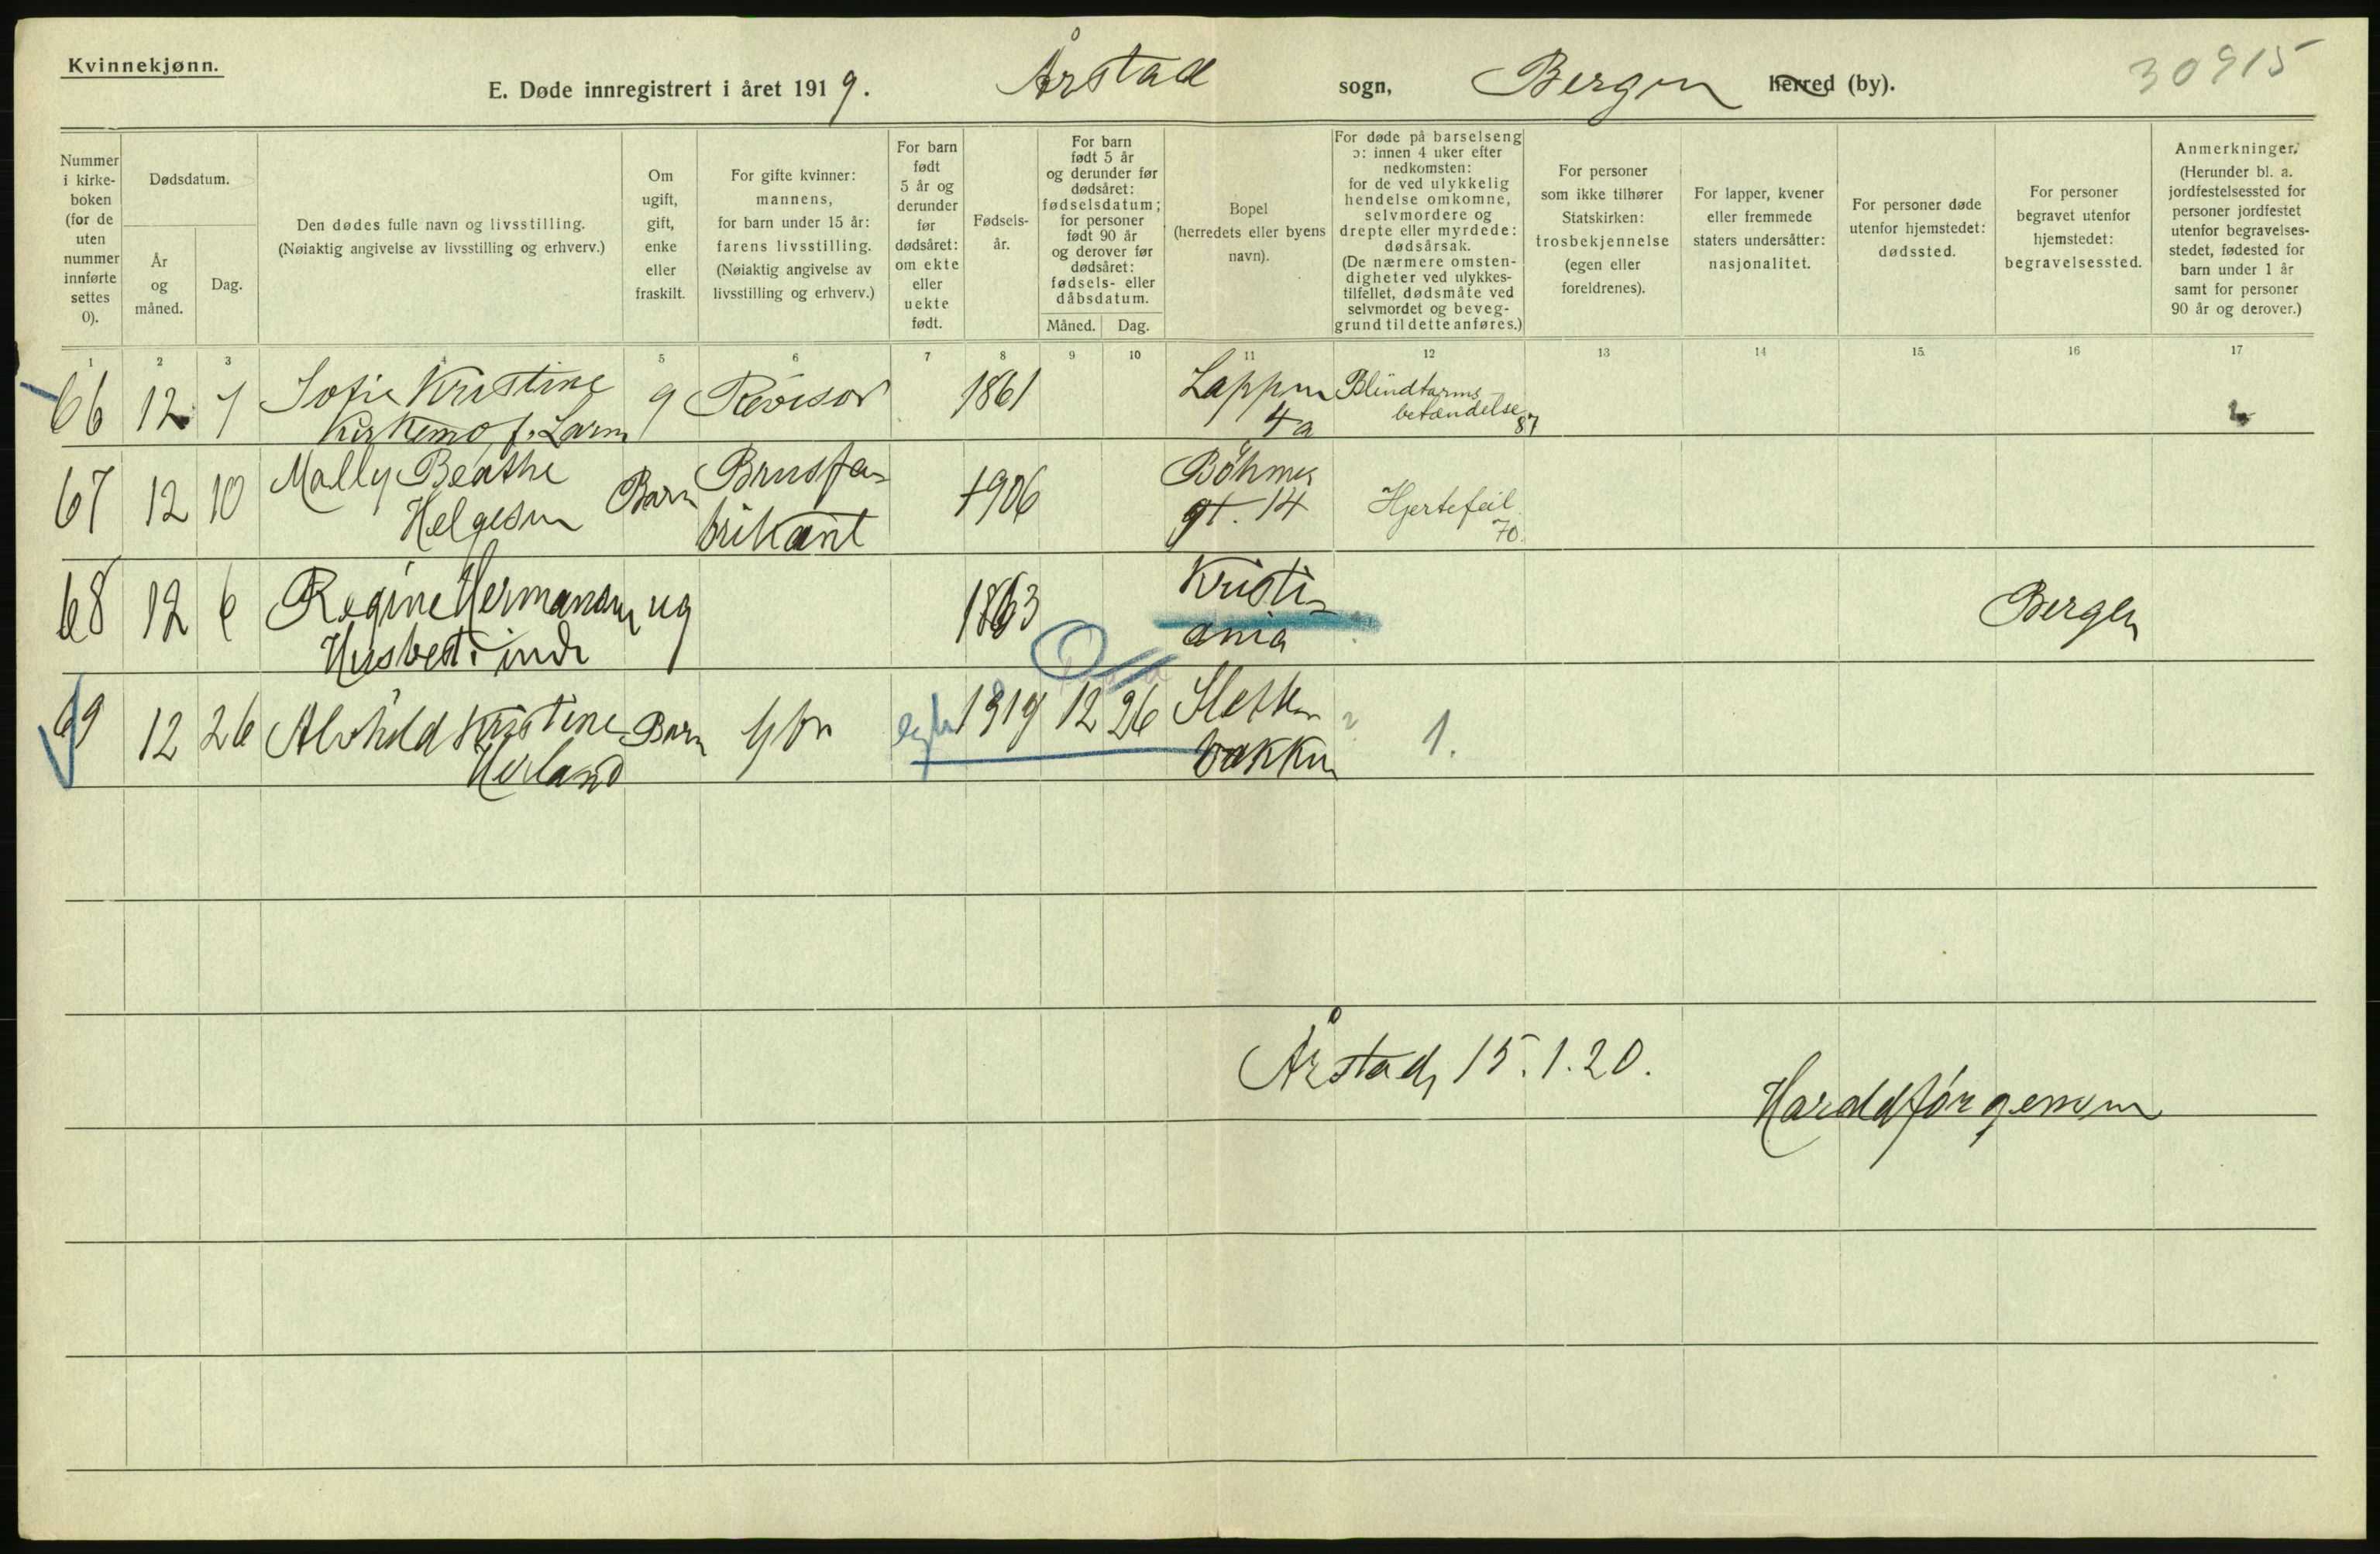 Kvinnekjønn.
E. Døde innregistrert i året 1919. Årstad sogn, Bergen herred (by).
30915
Nummer i kirkeboken (for de uten nummer innførte settes 0).
Dødsdatum.
År og måned.
Dag.
Den dødes fulle navn og livsstilling.
(Nøiaktig angivelse av livsstilling og erhverv.)
Om ugift, gift, enke eller fraskilt.
For gifte kvinner: mannens, for barn under 15 år: farens livsstilling. (Nøiaktig angivelse av livsstilling og erhverv.)
For barn født 5 år og derunder før dødsåret: om ekte eller uekte født.
Fødselsår.
For barn født 5 år og derunder før dødsåret: fødselsdatum; for personer født 90 år og derover før dødsåret: fødsels- eller dåbsdatum.
Måned. Dag.
Bopel (herredets eller byens navn).
For døde på barselseng ɔ: innen 4 uker efter nedkomsten: for de ved ulykkelig hendelse omkomne, selvmordere og drepte eller myrdede: dødsårsak. (De nærmere omstendigheter ved ulykkestilfellet, dødsmåte ved selvmordet og beveggrund til dette anføres.)
For personer som ikke tilhører Statskirken: trosbekjennelse (egen eller foreldrenes).
For lapper, kvener eller fremmede staters undersåtter: nasjonalitet.
For personer døde utenfor hjemstedet: dødssted.
For personer begravet utenfor hjemstedet: begravelsessted.
Anmerkninger. (Herunder bl. a. jordfestelsessted for personer jordfestet utenfor begravelsesstedet, fødested for barn under 1 år samt for personer 90 år og derover.)
1 2 3 4 5 6 7 8 9 10 11 12 13 14 15 16 17
66 12 7 Sofie Kristine g Revisor 1861 Lappen Blindtarms
Kirkemo f. Larm 4a betændelse 87
67 12 10 Mally Beathe Barn Brusfa- 1906 Böhmer
Helgesen brikant gt. 14 Hjertefeil 70.
68 12 6 Regine Hermansen ug 1863 Kristi- Bergen
Husbest.inde ania
69 12 26 Alvhild Kristine Barn Gbr egte 1919 12 26 Sletten ? 1.
Herland bakken
Årstad, 15.1.20.
Harald Jørgensen